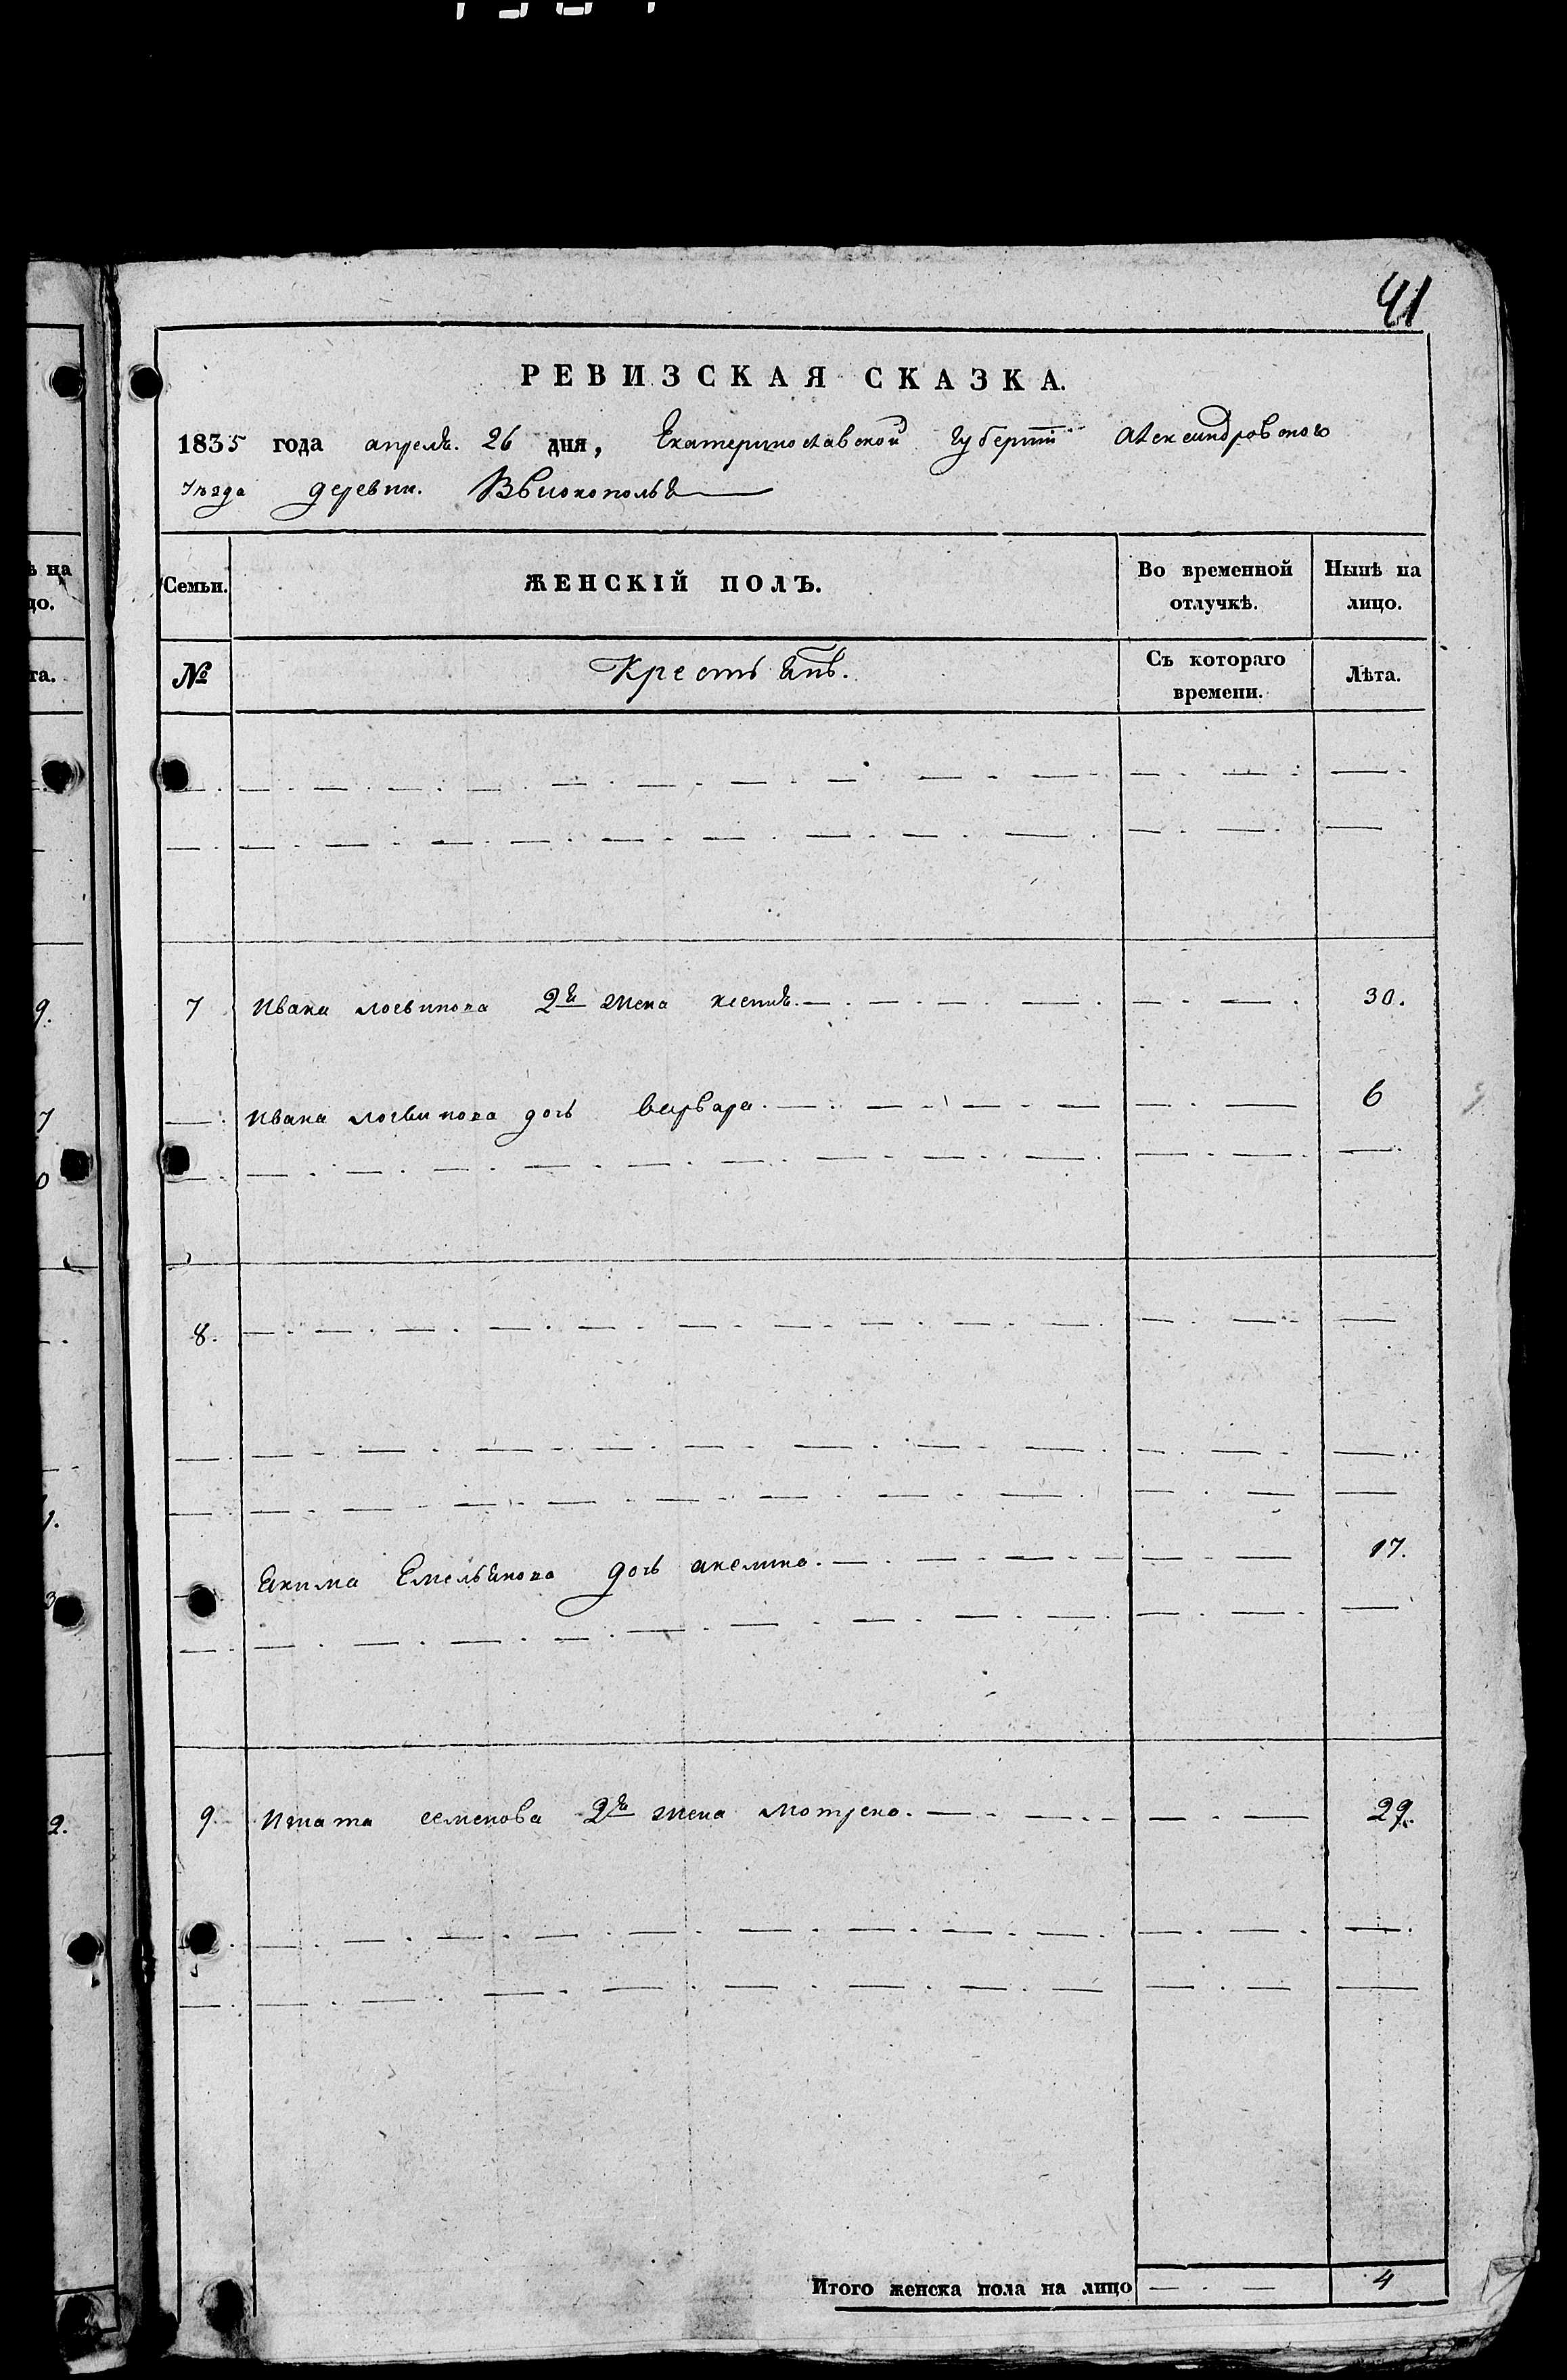 41
РЕВИЗСКАЯ СКАЗКА.
1835 года апреля. 26 дня, Екатеринославской губернии Александровского
уезда деревни. Высокополья
Семьи. ЖЕНСКІЙ ПОЛЪ. Во временной отлучкѣ. Нынѣ на лицо.
№ Крестьянъ. Съ котораго времени. Лѣта.
7 Ивана логвинова 2я жена ксения. 30.
Ивана логвинова дочь варвара. 6
8.
Якима Емельянова дочь акелина. 17.
9. Игната семенова 2я жена мотрена. 29.
Итого женска пола на лицо 4